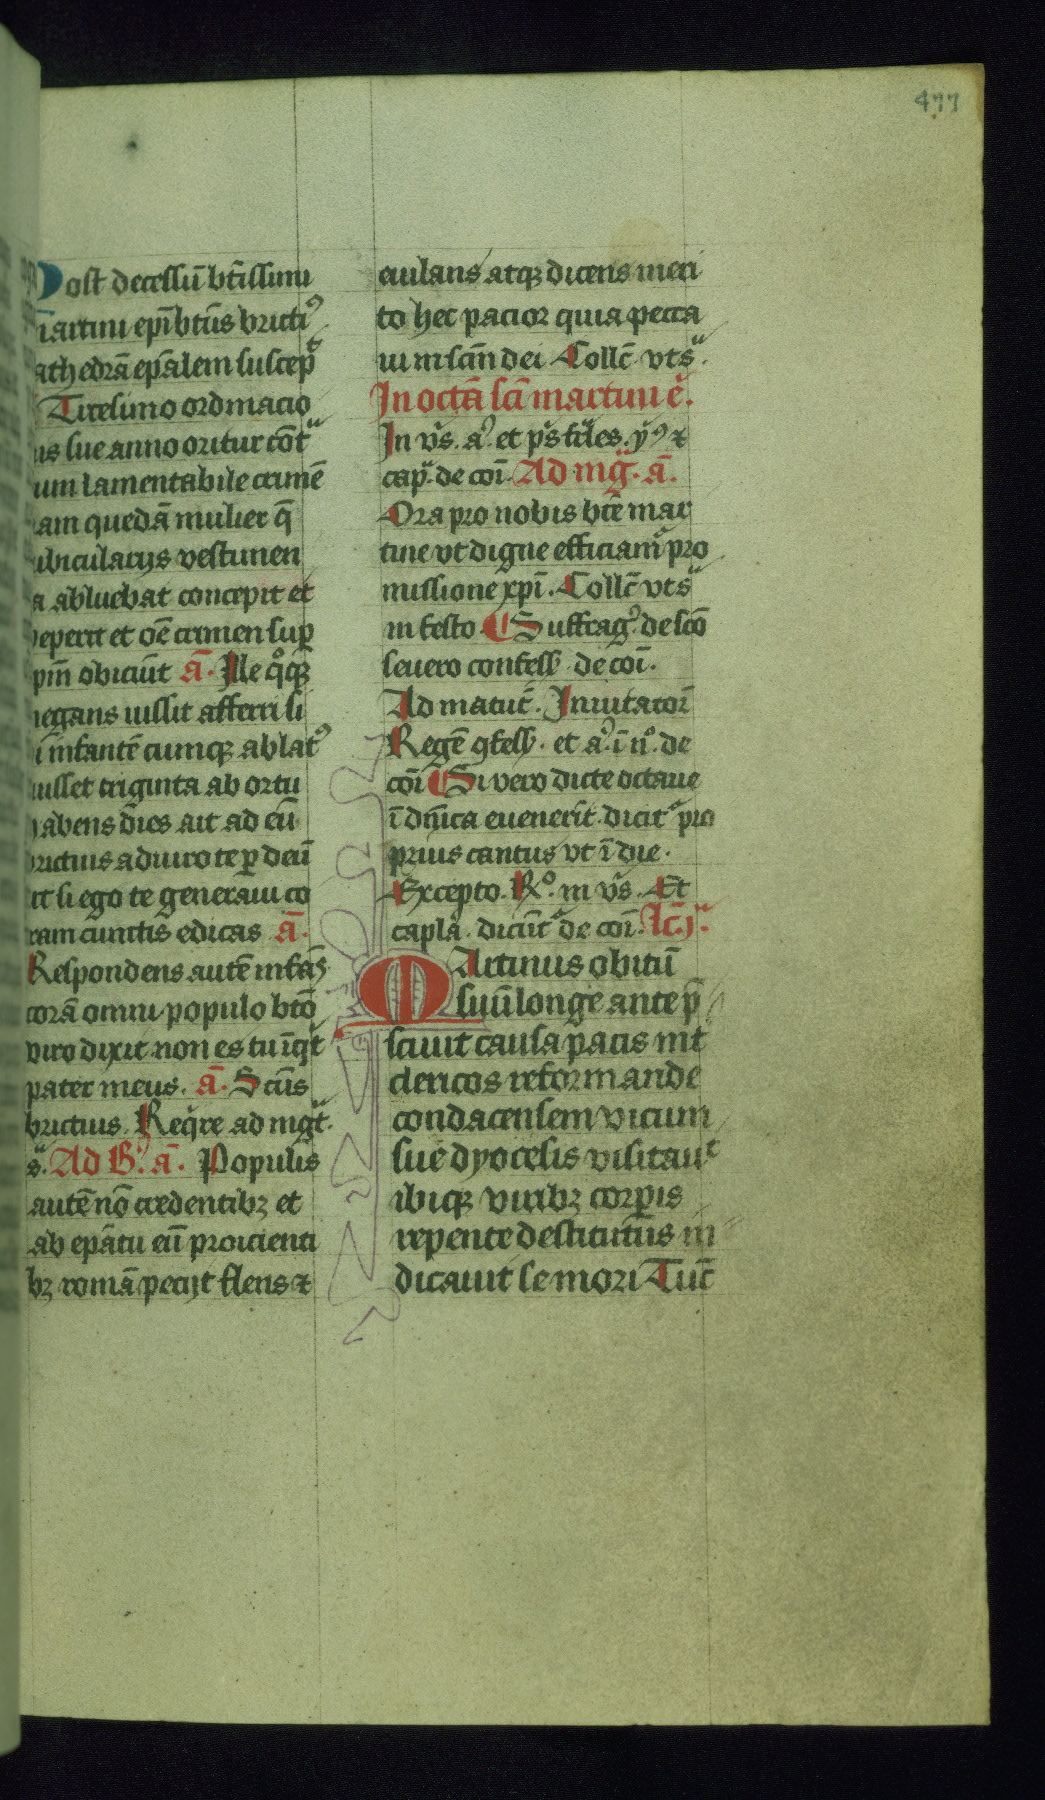 477
Post decessu᷈ bt̄issimi
martini ep̄i bt̄us bricti⁹
cathedrā ep̄alem suscep̄t
Tricesimo ordinacio
nis sue anno oritur cōt͛
um lamentabile crimē
nam quedā mulier q̄
cubicularijs vestimen
ta abluebat concepit et
peperit et oē crimen suꝑ
ep̄m obiciūt ā. Ille qͦqꝫ
negans iussit afferri si
bi infantē cumqꝫ ablat⁹
fuisset triginta ab ortu
habens dies ait ad eū
brictius adiuro te ꝑ deū
ut si ego te generaui co
ram cunctis edicas ā.
Respondens autē infās
corā omni populo btō
viro dixit non es tu īqͥt
pater meus. ā. Scūs
brictius. Reqͥre ad mgͭ.
s. Ad B. ā. Populis
autē nō credentibꝫ et
ab ep̄atu eū proicienti
bꝫ romā pecijt flens ⁊
eiulans atqꝫ dicens meri
to hec pacior quia pecca
ui in scm̄ dei Collc̄ vts͛.
In octā scī martini e͛.
In vs̄. a⁹. et ps̄ fi͛les. y⁹ ⁊
cap͛. de coī. Ad mg͛. ā.
Ora pro nobis btē mar
tine vt digne efficiam͛ pro
missione xp̄i. Collc̄ vts͛
in festo. Suffrag⁹. de scō
seuero confess̄. de coī.
Ad matut̄. Inuitatorī
Regē ꝯfess̄. et a⁹. ī n͛o. de
coī Si vero dicte octaue
ī dn̄ica euenerīt. dicit͛ pro
prius cantus vt ī die.
Excepto. R͛o. in vs̄. Et
capl̄a. dicūt͛ de coī. lc̄. j͛.
MArtinus obitū
suū longe ante p̄
sciuit causa pacis int̄
clericos reformande
condacensem vicum
sue dyocesis visitauͭ
ibiqꝫ viribꝫ corꝑis
repente destitutus in
dicauit se mori Tūc